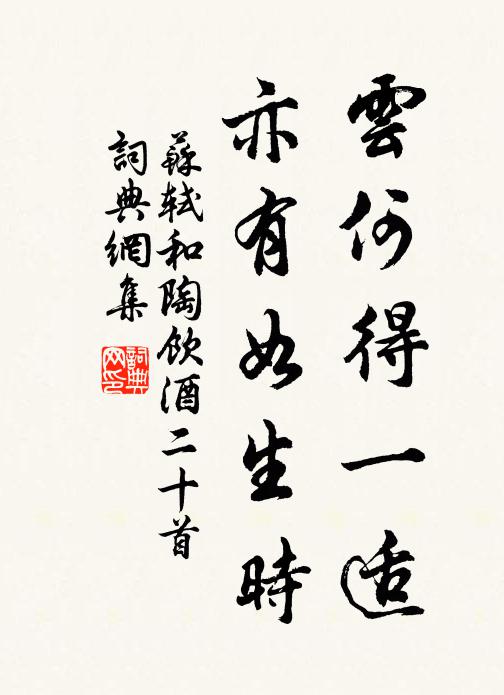 雲何得一适
亦有如生時
蘇軾和陶飲酒二十首
詞典網集
詞典网印